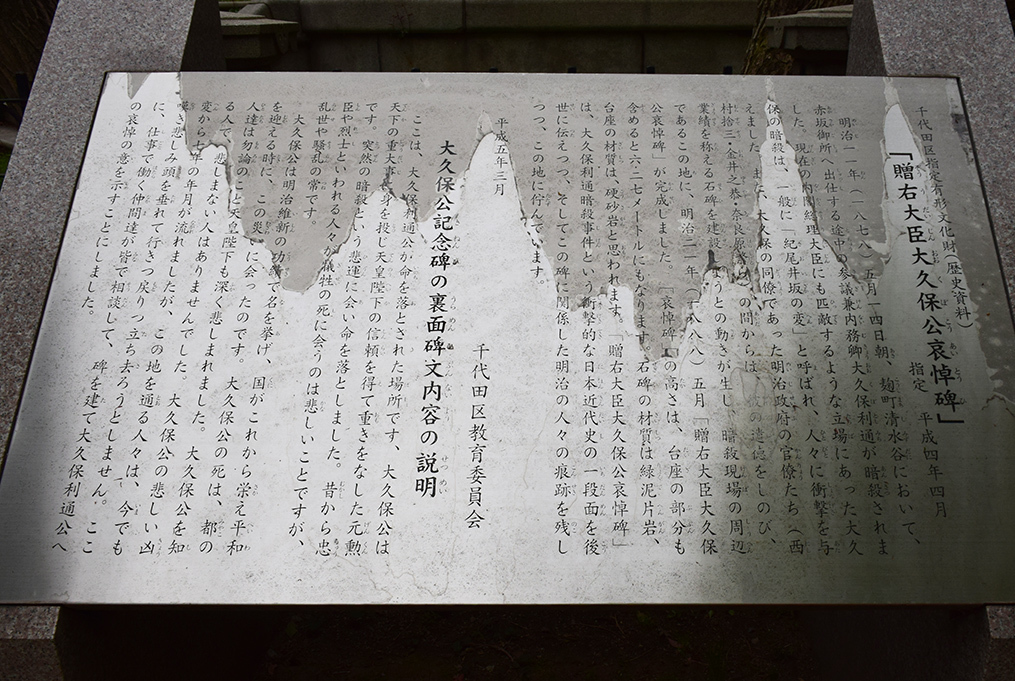 千代田区指定有形文化財(歴史資料)
「贈右大臣大久保公哀悼碑」
指定 平成四年四月
明治一一年(一八七八)五月一四日朝、麹町清水谷において、
赤坂御所へ出仕する途中の参議兼内務卿大久保利通が暗殺されま
した。現在の内閣総理大臣にも匹敵するような立場にあった大久
保の暗殺は、一般に「紀尾井坂の変」と呼ばれ、人々に衝撃を与
えました。また、大久保の同僚であった明治政府の官僚たち(西
村捨三・金井之恭・奈良原 の間からは の遺徳をしのび、
業績を称える石碑を建設 ようとの動きが生 、暗殺現場の周辺
であるこの地に、明治二一年( 八八八)五月「贈右大臣大久保
公哀悼碑」が完成しました。「哀悼碑」の高さは、台座の部分も
含めると六・二七メートルにもなります。石碑の材質は緑泥片岩、
台座の材質は、硬砂岩と思われます。「贈右大臣大久保公哀悼碑」
は、大久保利通暗殺事件という衝撃的な日本近代史の一段面を後
世に伝えつつ、そしてこの碑に関係した明治の人々の痕跡を残し
つつ、この地に佇んでいます。
平成五年三月
千代田区教育委員会
大久保公記念碑の裏面碑文内容の説明
ここは、大久保利通公が命を落とされた場所です、大久保公は
天下の重大事 身を投じ天皇陛下の信頼を得て重きをなした元勲
です。突然の暗殺という悲運に会い命を落としました。昔から忠
臣や烈士といわれる人々が犠牲の死に会うのは悲しいことですが、
乱世や騒乱の常です。
大久保公は明治維新の功績で名を挙げ、国がこれから栄え平和
を迎える時に、この災いに会ったのです。大久保公の死は、都の
人達は勿論のこと天皇陛下も深く悲しまれました。大久保公を知
る人で、悲しまない人はありませんでした。大久保公の悲しい凶
変から七年の年月が流れましたが、この地を通る人々は、今でも
嘆き悲しみ頭を垂れて行きつ戻りつ立ち去ろうとしません。ここ
に、仕事で働く仲間達が皆で相談して、碑を建て大久保利通公へ
の哀悼の意を示すことにしました。